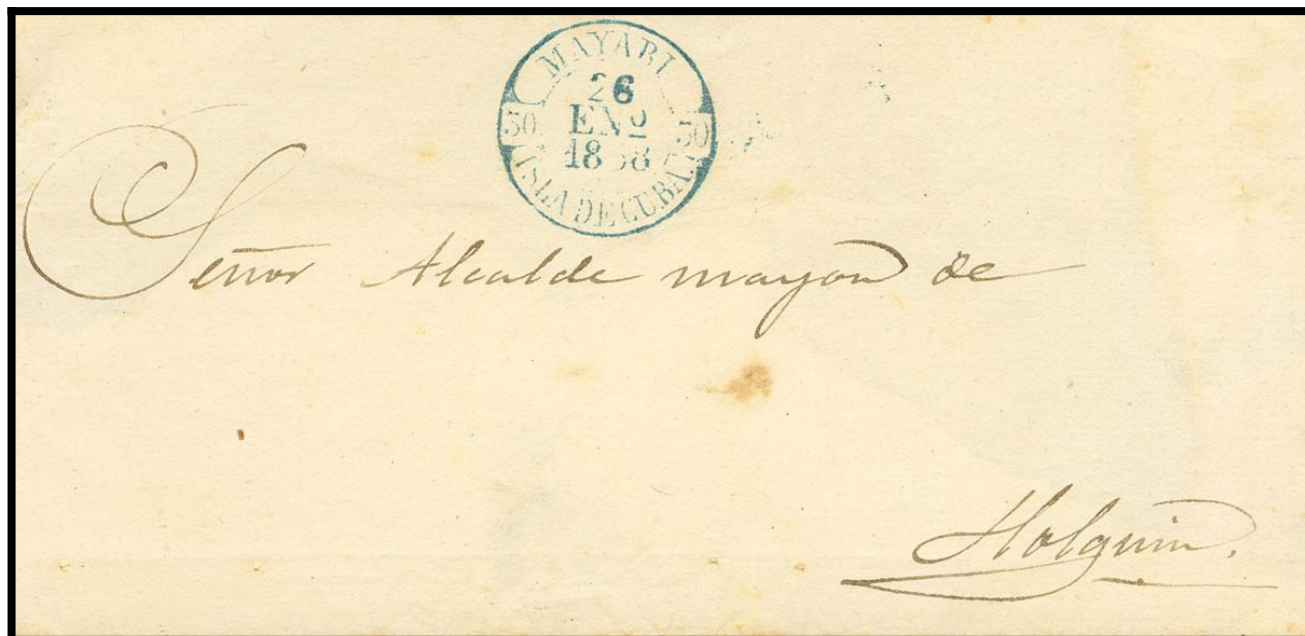 MAYARI
26
ENº
ISLA DE CUBA.
Señor Alcalde mayor de
Holguin.